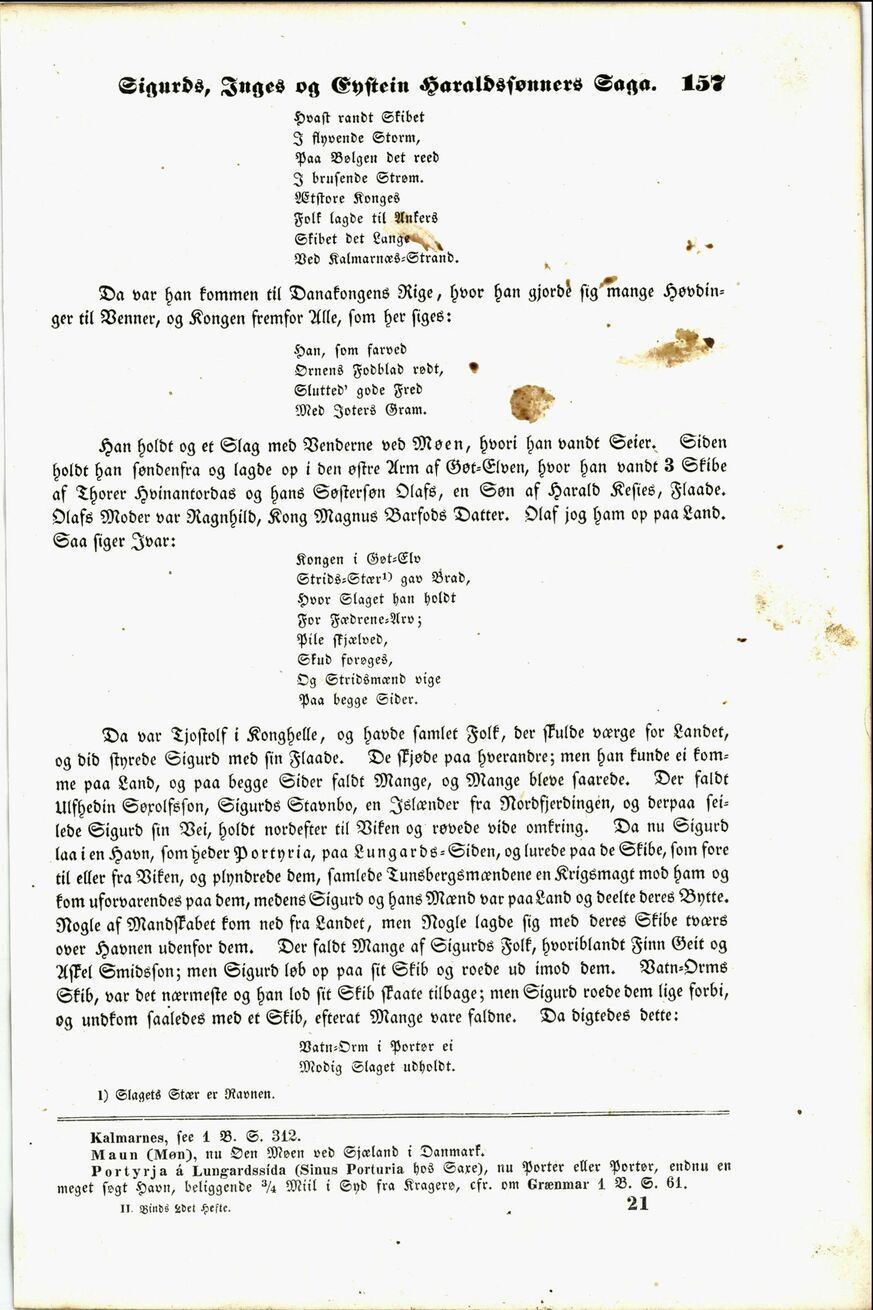 Sigurds, Inges og Eystein Haraldssønners Saga. 157
Hvast randt Skibet
I flyvende Storm,
Paa Bølgen det reed
I brusende Strøm.
Ætstore Konges
Folk lagde til Ankers
Skibet det Lange
Ved Kalmarnæs-Strand.
Da var han kommen til Danakongens Rige, hvor han gjorde sig mange Høvdin-
ger til Venner, og Kongen fremfor Alle, som her siges:
Han, som farved
Ørnens Fodblad rødt,
Slutted' gode Fred
Med Joters Gram.
Han holdt og et Slag med Venderne ved Møen, hvori han vandt Seier. Siden
holdt han søndenfra og lagde op i den østre Arm af Gøt-Elven, hvor han vandt 3 Skibe
af Thorer Hvinantordas og hans Søstersøn Olafs, en Søn af Harald Kesies, Flaade.
Olafs Moder var Ragnhild, Kong Magnus Barfods Datter. Olaf jog ham op paa Land.
Saa siger Ivar:
Kongen i Gøt-Elv
Strids-Stær1) gav Brad,
Hvor Slaget han holdt
For Fædrene-Arv;
Pile skjælved,
Skud forøges,
Og Stridsmænd vige
Paa begge Sider.
Da var Tjostolf i Konghelle, og havde samlet Folk, der skulde værge for Landet,
og did styrede Sigurd med sin Flaade. De skjøde paa hverandre; men han kunde ei kom-
me paa Land, og paa begge Sider faldt Mange, og Mange bleve saarede. Der faldt
Ulfhedin Søxolfsson, Sigurds Stavnbo, en Islænder fra Nordfjerdingen, og derpaa sei-
lede Sigurd sin Vei, holdt nordefter til Viken og røvede vide omkring. Da nu Sigurd
laa i en Havn, som heder Portyria, paa Lungards-Siden, og lurede paa de Skibe, som fore
til eller fra Viken, og plyndrede dem, samlede Tunsbergsmændene en Krigsmagt mod ham og
kom uforvarendes paa dem, medens Sigurd og hans Mænd var paa Land og deelte deres Bytte.
Nogle af Mandskabet kom ned fra Landet, men Nogle lagde sig med deres Skibe tværs
over Havnen udenfor dem. Der faldt Mange af Sigurds Folk, hvoriblandt Finn Geit og
Askel Smidsson; men Sigurd løb op paa sit Skib og roede ud imod dem. Vatn-Orms
Skib, var det nærmeste og han lod sit Skib skaate tilbage; men Sigurd roede dem lige forbi,
og undkom saaledes med et Skib, efterat Mange vare faldne. Da digtedes dette:
Vatn-Orm i Portør ei
Modig Slaget udholdt.
1) Slagets Stær er Ravnen.
Kalmarnes, see 1 B. S. 312.
Maun (Møn), nu Øen Møen ved Sjæland i Danmark.
Portyrja á Lungardssída (Sinus Porturia hos Saxe), nu Porter eller Portør, endnu en
meget søgt Havn, beliggende 3/4 Miil i Syd fra Kragerø, cfr. om Grænmar 1 B. S. 61.
II. Binds 2det Hefte. 21